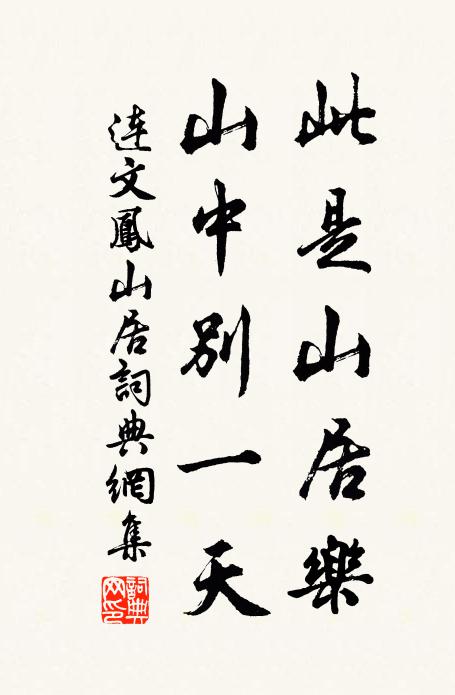 此是山居樂
山中別一天
連文鳳山居詞典網集
詞典網印